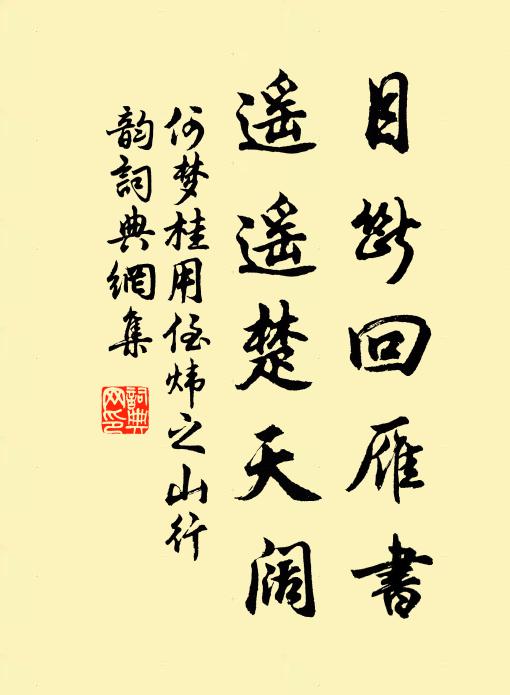 目断回雁书
遥遥楚天阔
何梦桂用侄炜之山行
韵詞典網集
詞典网印